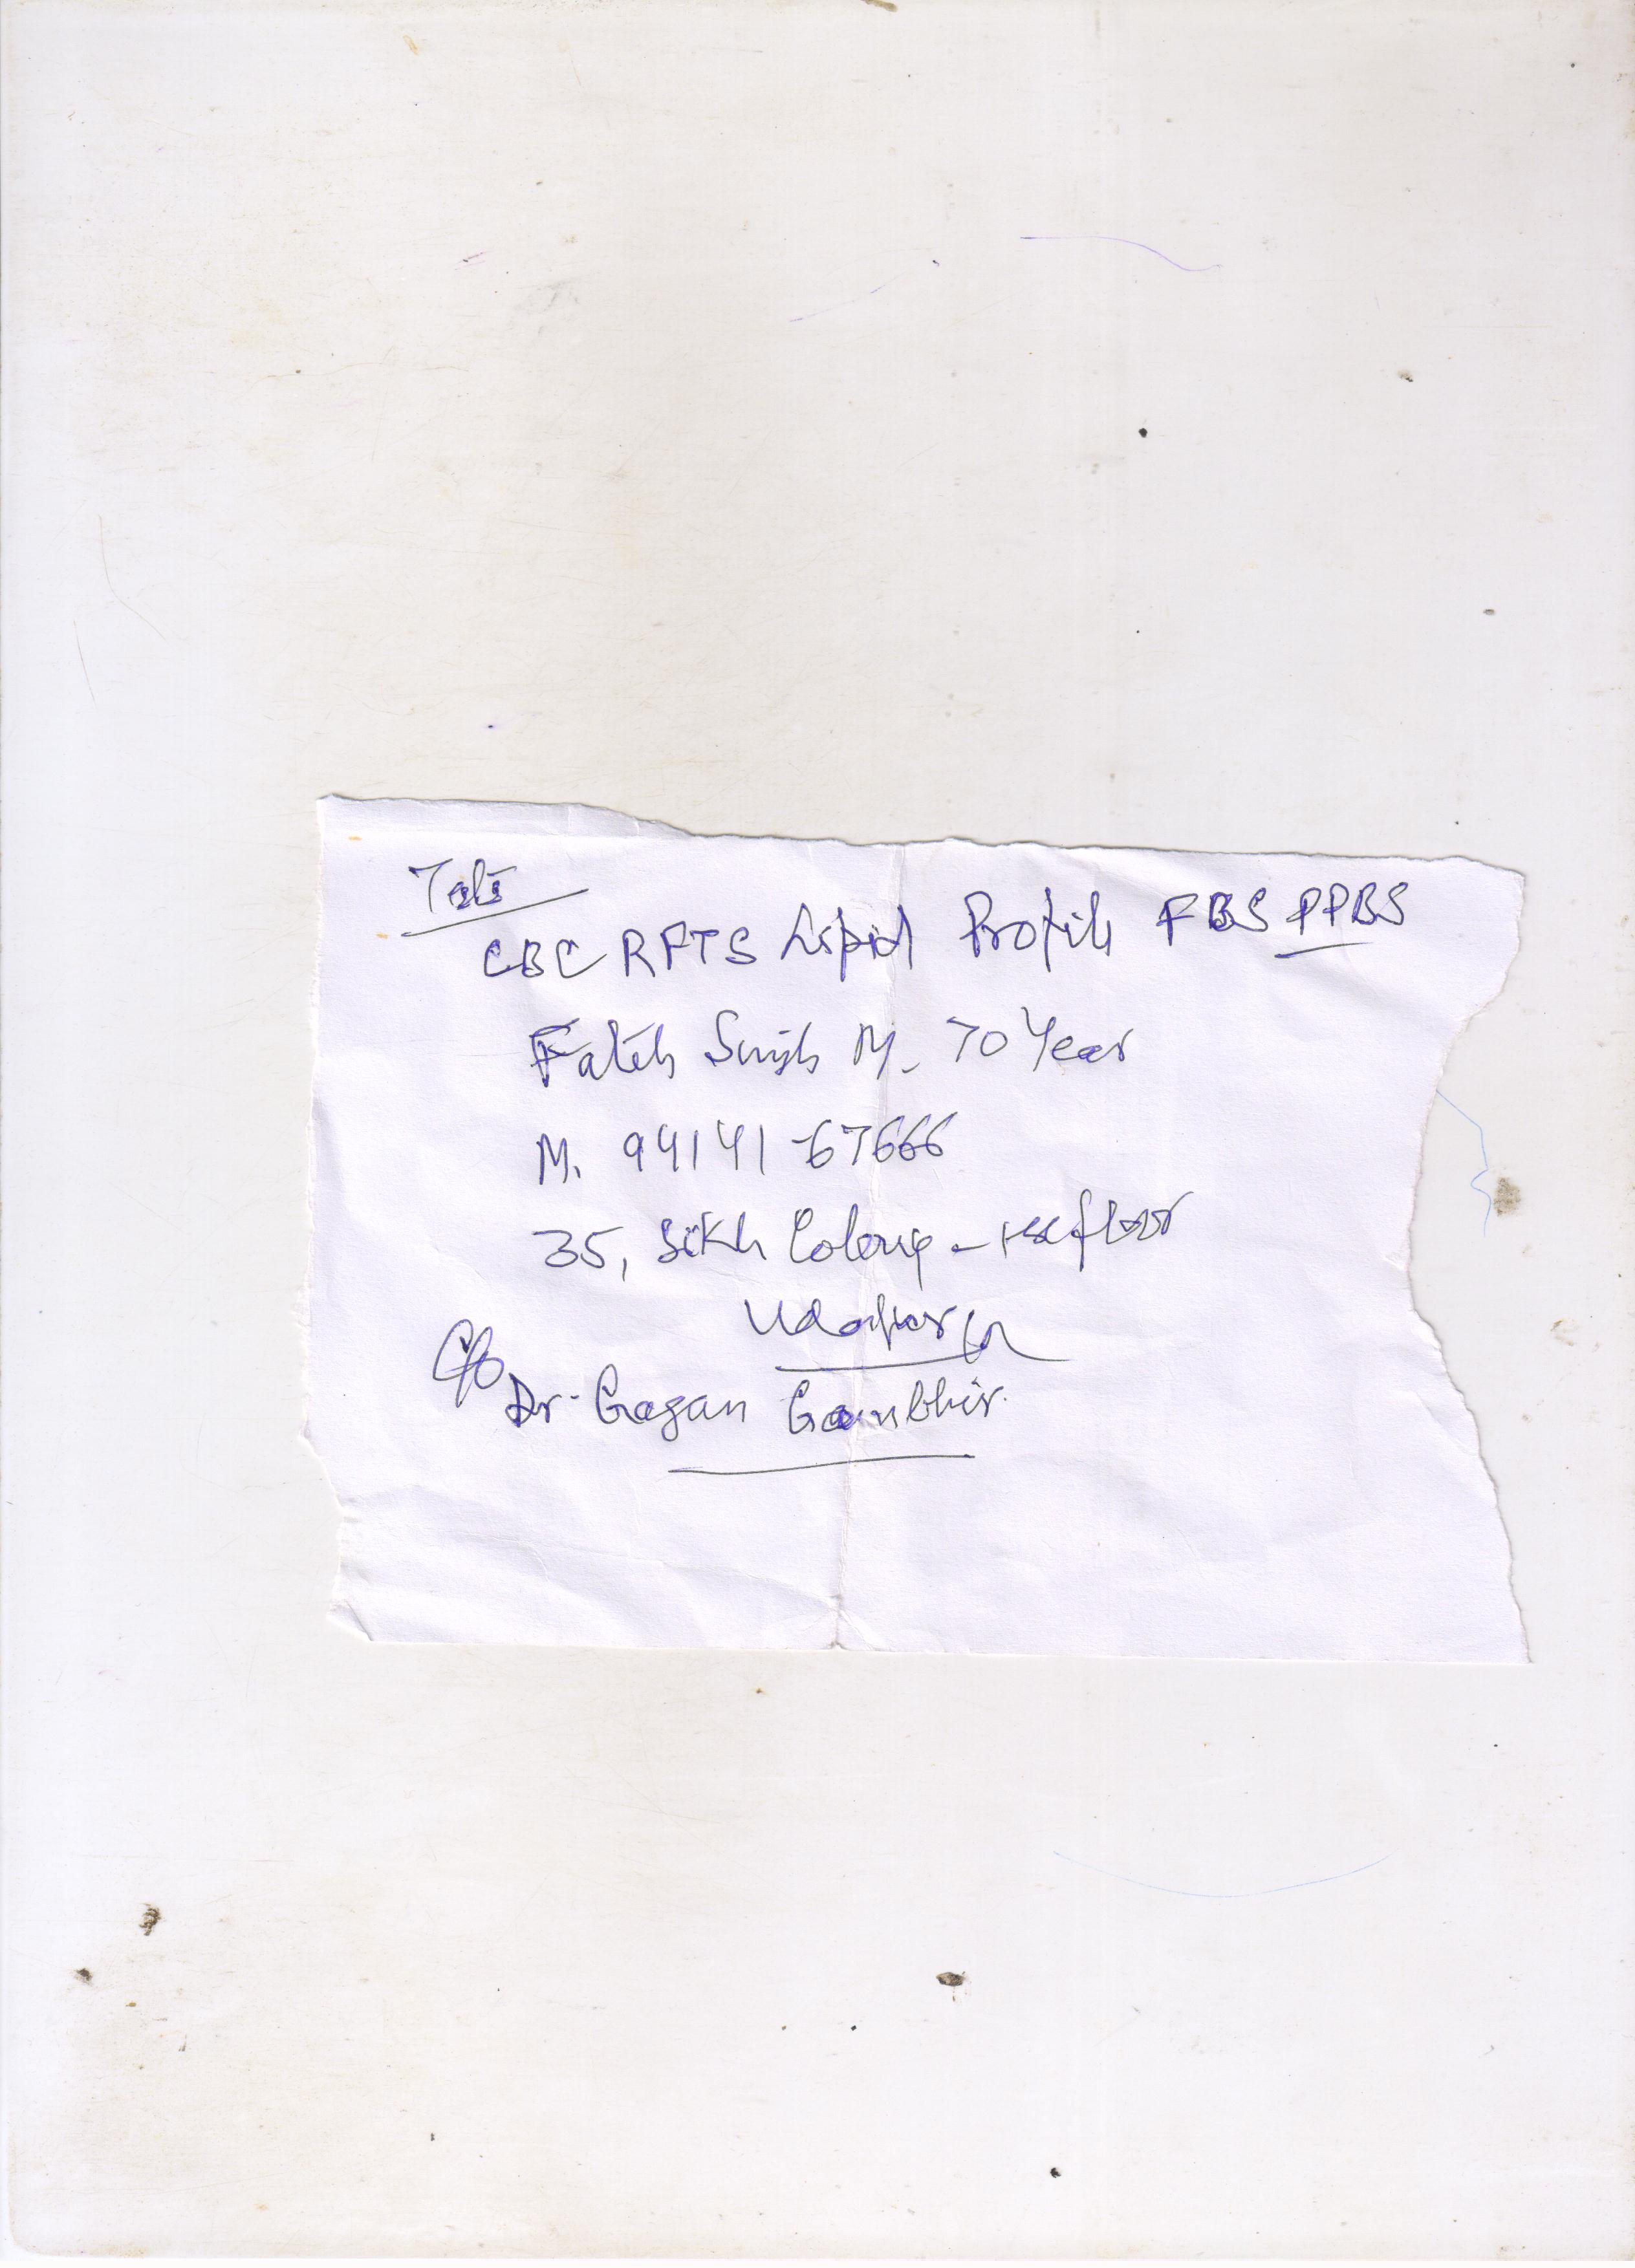 Tests
CBC RFTS Lipid Profile FBS PPBS
Fateh Singh M. 70 Year
M. 94141-67666
35, Sikh Colony - floor
Udaipur
C/o
Dr. Gagan Gambhir.